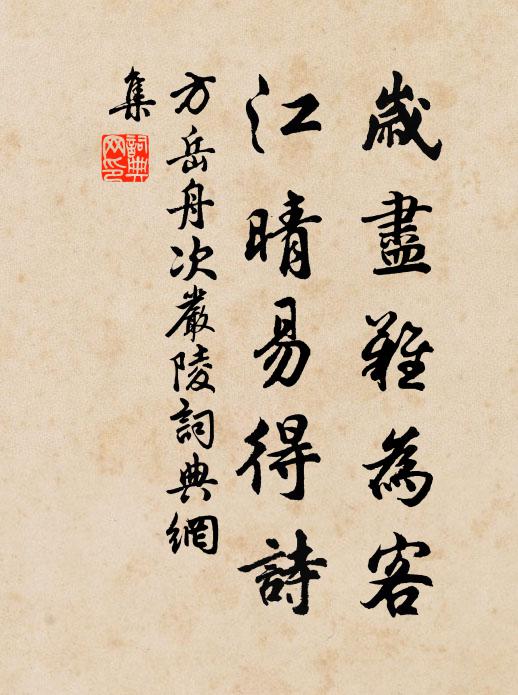 歲盡難為客
江晴易得詩
方岳舟次嚴陵詞典網
集
詞典
網印